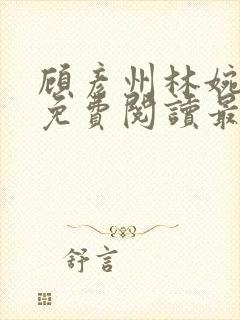 顧彥州林婉
免費閱讀最
舒言